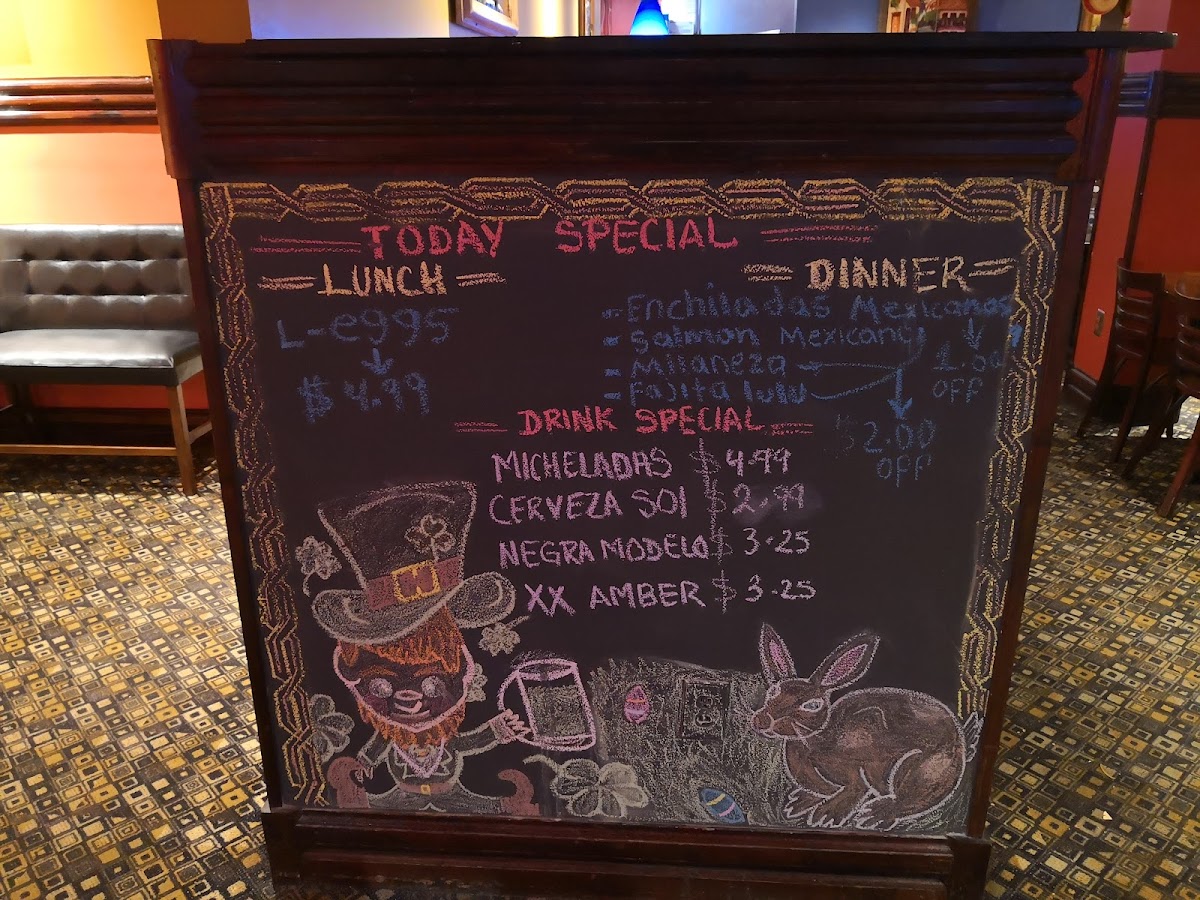 TODAY SPECIAL
LUNCH
L-eggs
$4.99
DINNER
- Enchiladas Mexicanas
- Salmon Mexicano
- Milaneza
- Fajita lulu
1.00
OFF
$2.00
OFF
DRINK SPECIAL
MICHELADAS $4.99
CERVEZA SOl $2.99
NEGRA MODELO $3.25
XX AMBER $3.25